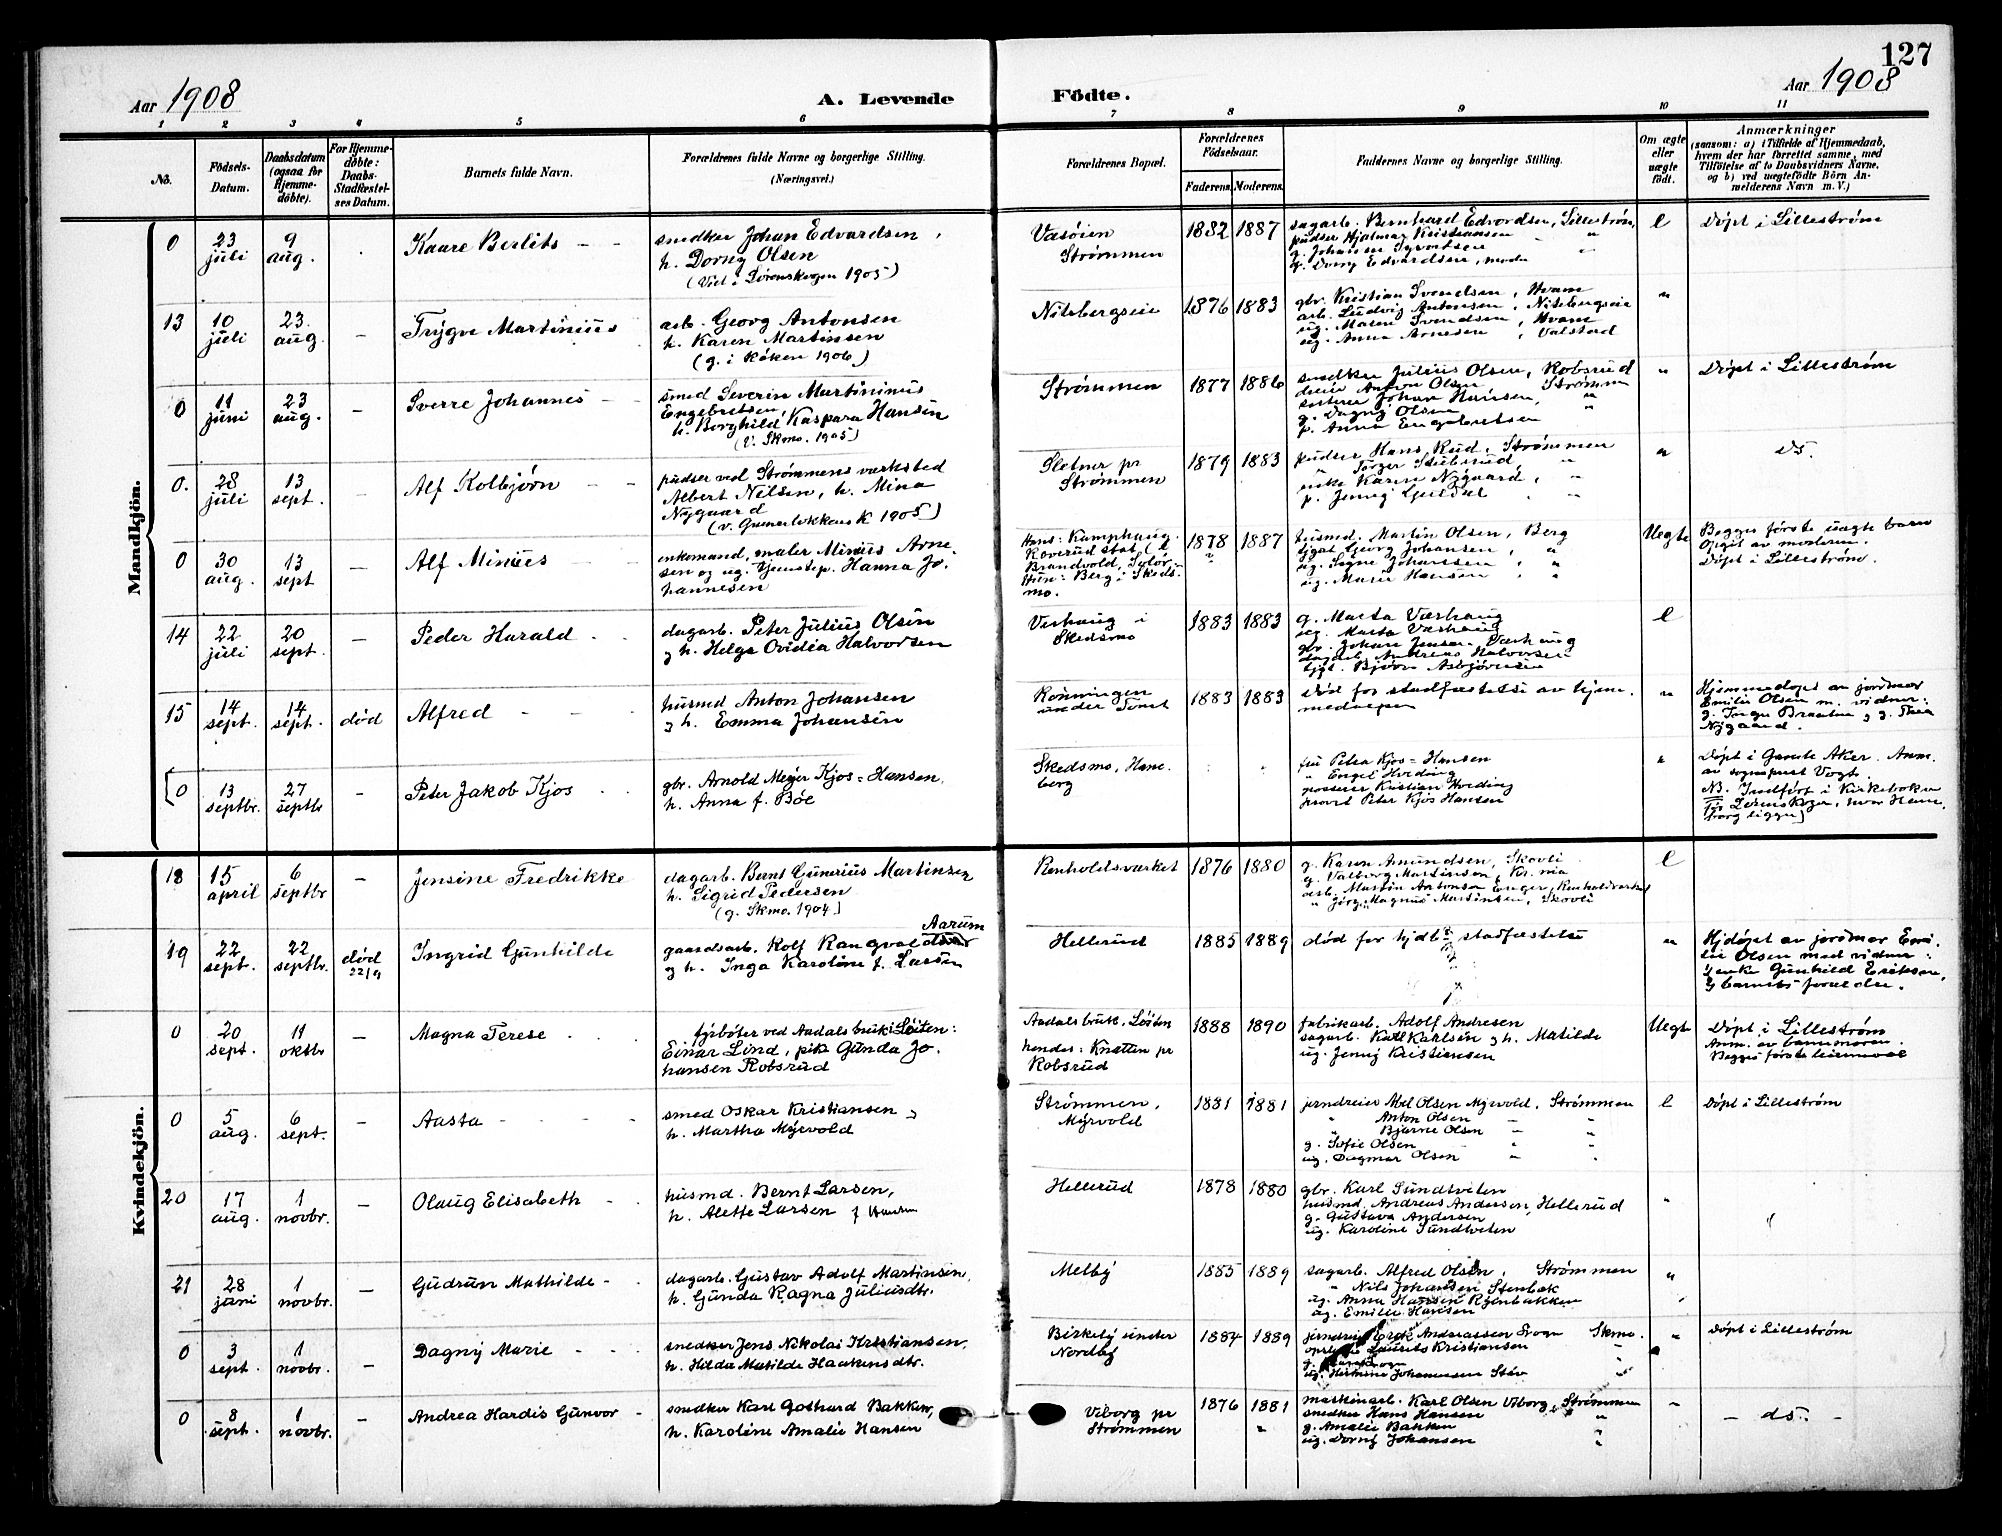 127
Aar 1908
A. Levende
Födte.
Aar 1908
1 2 3 4 5 6 7 8 9 10 11
No.
Födsels-
Datum.
Daabsdatum
(ogsaa for
Hjemme-
döbte).
For Hjemme-
döbte:
Daabs-
Stadfæstel-
ses Datum.
Barnets fulde Navn.
Forældrenes fulde Navne og borgerlige Stilling.
(Næringsvei.)
Forældrenes Bopæl.
Forældrenes
Födselsaar.
Faderens.
Moderens.
Faddernes Navne og borgerlige Stilling.
Om ægte
eller
uægte
født.
Anmærkninger
(saasom: a) i Tilfælde af Hjemmedaab,
hvem der har forrettet samme, med
Tilföielse af to Daabsvidners Navne,
og b) ved uægtefödte Börn An-
melderens Navn m. V.)
Mandkjön.
0
23
juli
9
aug.
Kaare Berlits
snedker Johan Edvardsen,
h. Dorny Olsen
(Viet i Lørenskogen 1905)
Vasöien
Strømmen
1882
1887
sagarb. Bernhard Edvardsen, Lillestrøm,
pudser Hjalmar Kristiansen "
g. Johanne Syvertsen "
g. Dorny Edvardsen, mode
e
Døpt i Lillestrøm
13
10
juli
23.
aug.
–
Trygve Martinius
arb. Georg Antonsen
h. Karen Martinsen
(g. i Røken 1906)
Nitebergseie
1876
1883
gbr. Kristian Svendsen, Hvam
arb. Ludvig Antonsen, Nitebergseie
ug. Maren Svendsen, Hvam
ug. Anna Arnesen, Valstad
"
0
11
juni
23
aug.
–
Sverre Johannes
smed Severin Martininius
Engebretsen,
h. Borghild Kaspara Hansen
(v. Skmo. 1905)
Strømmen
1877
1886
snedker Julius Olsen, Robsrud
dreier Anton Olsen, Strømmen
sorterer Johan Hansen, "
g. Dagny Olsen "
p. Anna Engebretsen
"
Døpt i Lillestrøm
0.
28
juli
13
sept.
–
Alf Kolbjørn
pudser ved Strømmens værksted
Albert Nilsen, h. Mina
Nygaard
(v. Grunerløkkens K 1905)
Sletner pr
Strømmen
1879
1883
pudser Hans Rud, Strømmen
" Torger Stubsrud, "
enke Karen Nygaard, "
p. Jenny Guldal "
"
Do.
0
30
aug.
13
sept
–
Alf Minius
enkemand, maler Minius Arne-
sen og ug. tjenstep. Hanna Jo-
hannesen
Hans: Kamphaug.
Roverud stat.
Brandvold, Solør
Hun: Berg i Skeds-
mo.
1878
1887
husmd. Martin Olsen, Berg
tjgt. Georg Johansen, "
ug. Signe Johanssen, "
ug. Marie Hansen, "
Uegte
Begges første uægte barn
Opgit av moderen.
Døpt i Lillestrøm.
14
22
juli
20
sept.
–
Peder Harald
dagarb. Peter Julius Olsen
og h. Helga Ovidia Halvorsen
Verhaug i
Skedsmo
1883
1883
g. Marta Værhaug
ug. Marta Værhaug
gbr. Johan Jensen Værhaug
dagarb. Andreas Halvorsen
tjgt. Bjørn Asbjörnsen
e
15
14
sept.
14
sept.
død
Alfred
husmd Anton Johansen
og h. Emma Johansen
Rönningen
under Tomt
1883
1883
Död for stadfæstelse av hjem-
medaapen
"
Hjemmedöpt av jordmor
Emilie Olsen m. vidner:
g. Inga Braaten og g. Thea
Nygaard.
0
13
septbr.
27
septbr
Peter Jakob Kjos
gbr. Arnold Meyer Kjos-Hansen,
h. Anna f. Bøe
Skedsmo, Hane-
berg
fru Petra Kjos-Hansen
" Engel Hvding
grosserer Kristian Hvding
provst Peter Kjos Hansen
"
Døpt i Gamle Aker. Anm.
av sognepræst Vogt.
NB. Indført i Kirkeboken
for Lørenskogen, hvor Hane-
borg ligger)
Kvindekjön.
18
15
april
6
septbr
–
Jensine Fredrikke
dagarb. Bernt Gunerius Martinsen
h. Sigrid Pedersen
(g. Skmo. 1904)
Renholdsværket
1876
1880
g. Karen Amundsen, Skovli
g. Valborg Martinsen, Kr.nia
arb. Martin Antonsen Enger, Renholdsverket
" Jörg. Magnus Martinsen, Skovli
e
19
22
sept.
22
septbr.
død
22/9
Ingrid Gunhilde
Aarum
gaardsarb. Rolf Rangvaldsen
og h. Inga Karoline f. Larsen
Hellerud
1885
1889
død for hjdb stadfæstelse
"
Hjdøpt av jordmor Emi-
lie Olsen med vidner:
Enke Gunhild Eriksen,
og barnets forældre.
0
20
sept.
11
oktbr
–
Magna Terese
fyrböter ved Aadals bruk i Løiten:
Einar Lind, pike Gunda Jo-
hansen Robsrud
Aadals bruk, Løiten
hendes: Knatten pr
Robsrud
1888
1890
fabrikarb. Adolf Andresen
sagarb. Karl Karlsen og h. Matilde
ug. Jenny Kristiansen
Uegte
Døpt i Lillestrøm
Anm. av barnemoren.
Begges første leiermaal
0
5
aug.
6
sept.
–
Aasta
smed Oskar Kristiansen og
h. Martha Myrvold
Strømmen,
Myrvold
1881
1881
jerndreier Abel Olsen Myrvold, Strømmen
" Anton Olsen – "
" Bjarne Olsen – "
g. Sofie Olsen – "
ug. Dagmar Olsen " "
e
Døpt i Lillestrøm
20
17
aug.
1
novbr.
–
Olaug Elisabeth
husmd. Bernt Larsen,
h. Alette Larsen f Hansen
Hellerud
1878
1880
gbr. Karl Sundtveten
husmd. Andreas Andersen, Hellerud
g. Gustava Andersen
ug. Karoline Sundtveten
"
"
21
28
juni
1
novbr.
–
Gudrun Mathilde
dagarb. Gustav Adolf Martinsen,
h. Gunda Ragna Juliusdtr.
Melby
1885
1889
sagarb. Alfred Olsen, Strømmen
" Nils Johansen Stenbæk
ug. Anna Hansen Rjønbakken
ug. Emilie Hansen
"
0
3
sept.
1
novbr.
–
Dagny Marie
snedker Jens Nikolai Kristiansen,
h. Hilda Matilde Haakensdtr.
Birkely under
Nordby
1884
1889
Andreassen Svogn Skmo.
Laurits Kristiansen
ug. Hermine Johannessen Støv
"
Døpt i Lillestrøm
0
8
sept.
1
novbr.
–
Andrea Hardis Gunvor
snedker Karl Gothard Bakken,
h. Karoline Amalie Hansen
Viborg pr
Strømmen
1876
1881
maskinarb. Karl Olsen Viborg, Strømmen
snedker Hans Hansen "
g. Amalie Bakken "
ug. Dorny Johansen "
"
– do. –